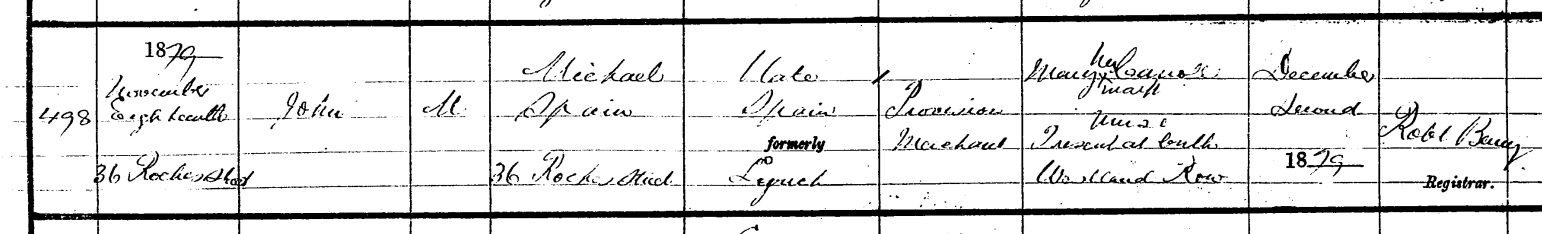 1879
498
November
Eighteenth
36 Roches Street
John
M
Michael
Spain
36 Roches Street
Kate
Spain
formerly
Lynch
Provision
Merchant
Mary
her
mark
Nurse
Present at birth
Westland Row
December
Second
1879
Robt
Registrar.